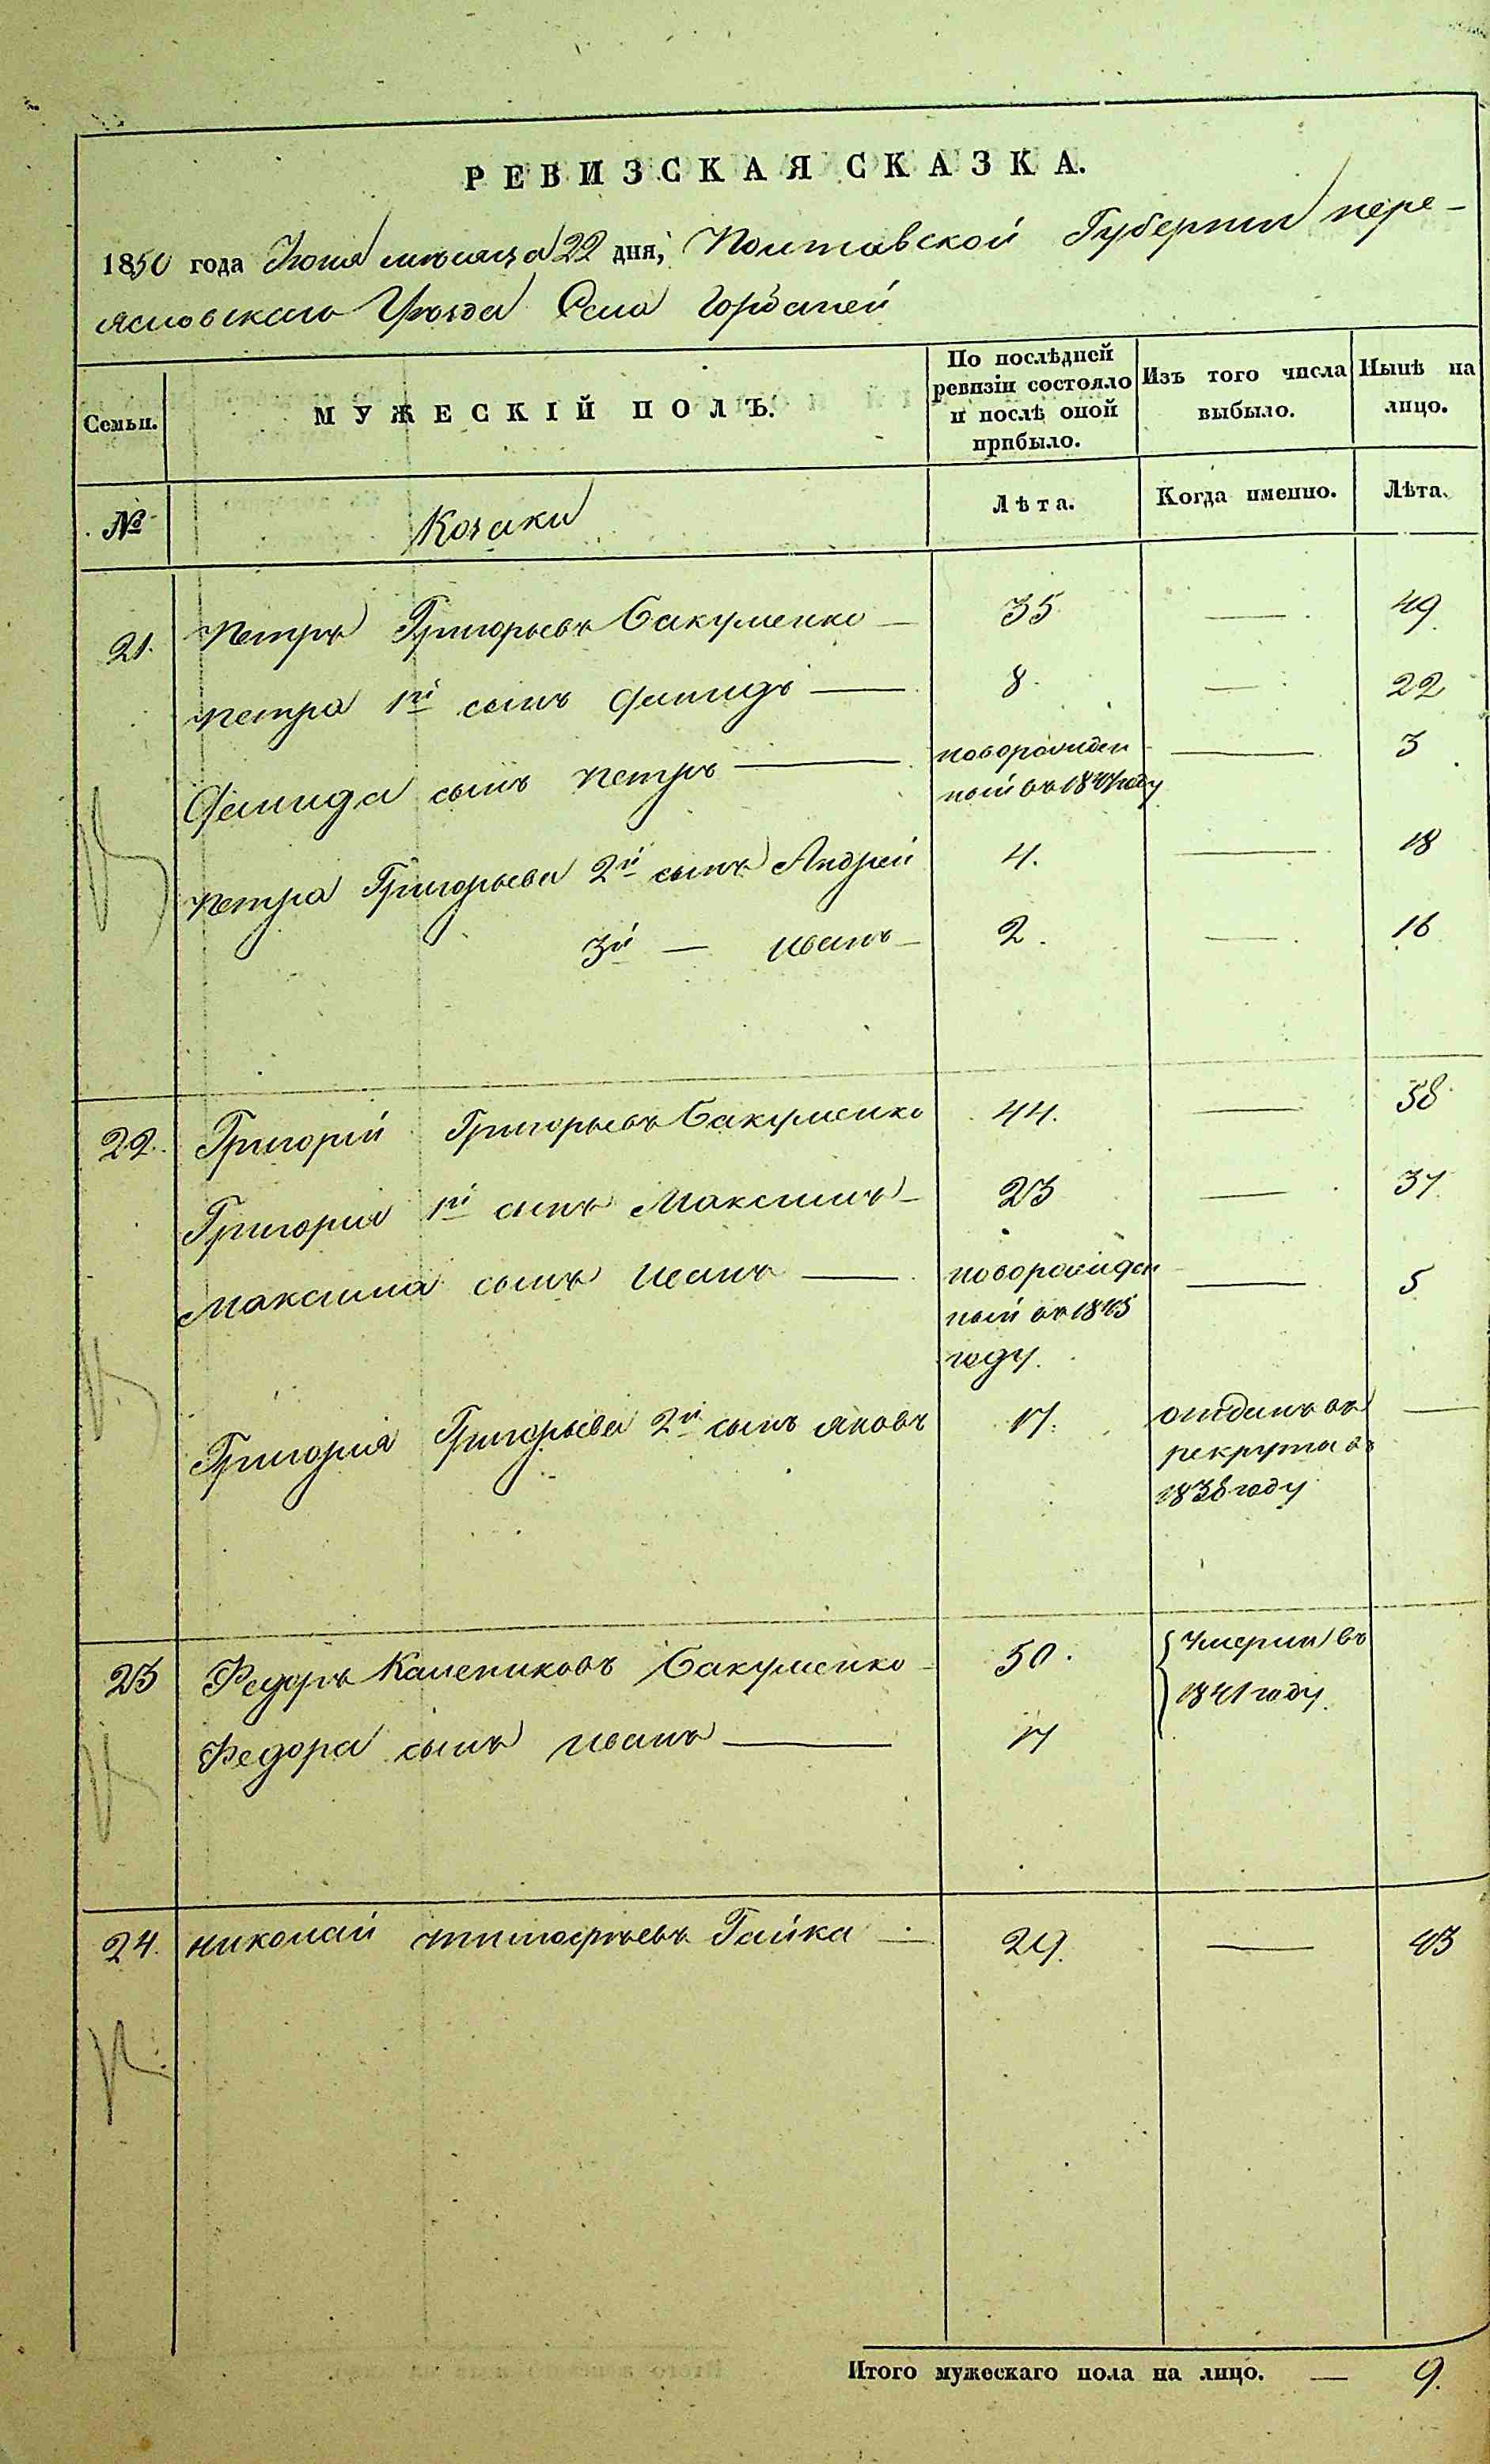 РЕВИЗСКАЯ СКАЗКА.
1850 года Июня мѣсяца 22 дня, Полтавской Губернии пере-
ясловскаго Уѣзда Села Горбаней
Семьи.
МУЖЕСКІЙ ПОЛЪ.
По послѣдней ревизіи состояло и послѣ оной прибыло.
Изъ того числа выбыло.
Нынѣ на лицо.
№
Козаки
Лѣта.
Когда именно.
Лѣта.
21. Петръ Григорьевъ Бакуменко — 35 — 49
Петра 1й сынъ — 8 — 22
сынъ Петръ — новорожден — 3
ный въ 1847 году
Петра Григорьева 2й сынъ Андрей 4. — 18
3й — Иванъ — 2. — 16
22. Григорій Григорьевъ Бакуменко 44. — 58
Григория 1й сынъ Максимъ — 23 — 37
Максима сынъ Иванъ — новорожден — 5
ный въ 1845
году.
Григория Григорьева 2й сынъ Яковъ 17. отданъ въ —
рекруты въ
1838 году
23 Федоръ Калениковъ Бакуменко — 50. Умерли въ
1841 году.
Федора сынъ Иванъ — 17
24. Николай Тимофѣевъ Гайка — 29. — 43
Итого мужескаго пола на лицо. — 9.